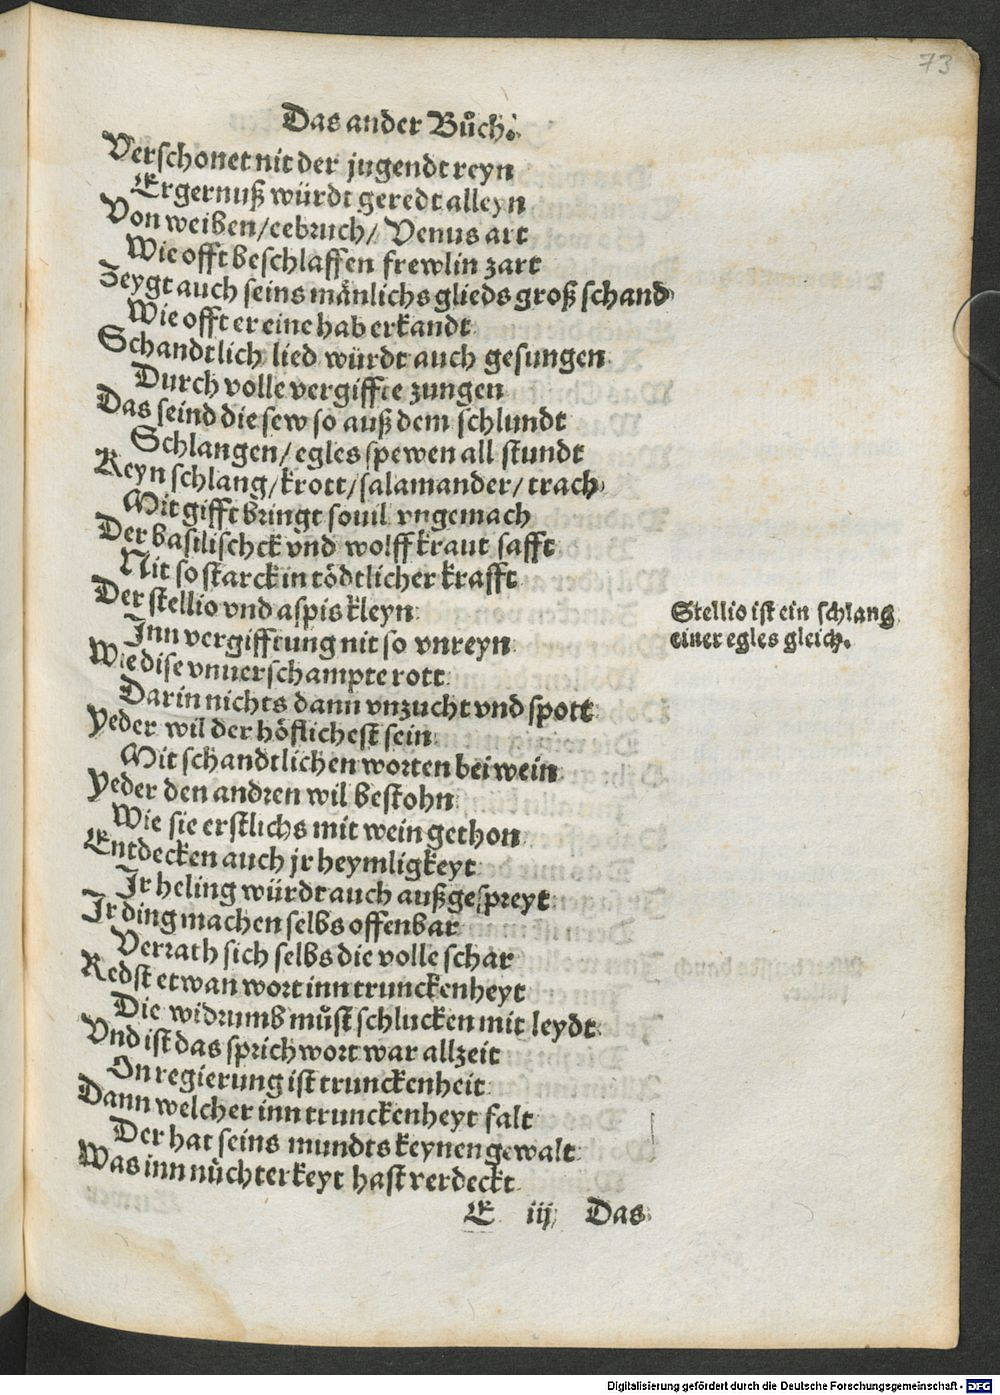 73
Das ander Bůch.
Verschonet nit der jugendt reyn
Ergernuß würdt geredt alleyn
Von weiben/eebruch/ Venus art
Wie offt beschlaffen frewlin zart
Zeygt auch seins mänlichs glieds groß schand
Wie offt er eine hab erkandt
Schandtlich lied würdt auch gesungen
Durch volle vergiffte zungen
Das seind die sew so auß dem schlundt
Schlangen/ egles spewen all stundt
Keyn schlang/krott/salamander/ trach
Mit gifft bringt souil vngemach
Der basilischck vnd wolffkraut safft
Nit so starck in tödtlicher krafft
Der stellio vnd aspis kleyn
Inn vergifftung nit so vnreyn
Wie dise vnuerschampte rott
Darin nichts dann vnzucht vnd spott
Yeder wil der höflichest sein
Mit schandtlichen worten bei wein
Yeder den andren wil bestohn
Wie sie erstlichs mit wein gethon
Entdecken auch jr heymligkeyt
Ir heling würdt auch außgespreyt
Ir ding machen selbs offenbar
Verrath sich selbs die volle schar
Redst etwan wort inn trunckenheyt
Die widrumb můst schlucken mit leydt
Vnd ist das sprichwort war allzeit
On regierung ist trunckenheit
Dann welcher inn trunckenheyt falt
Der hat seins mundts keynen gewalt
Was inn nüchterkeyt hast verdeckt
E iij Das
Stellio ist ein schlang
einer egles gleich.
Digitalisierung gefördert durch die Deutsche Forschungsgemeinschaft - DFG